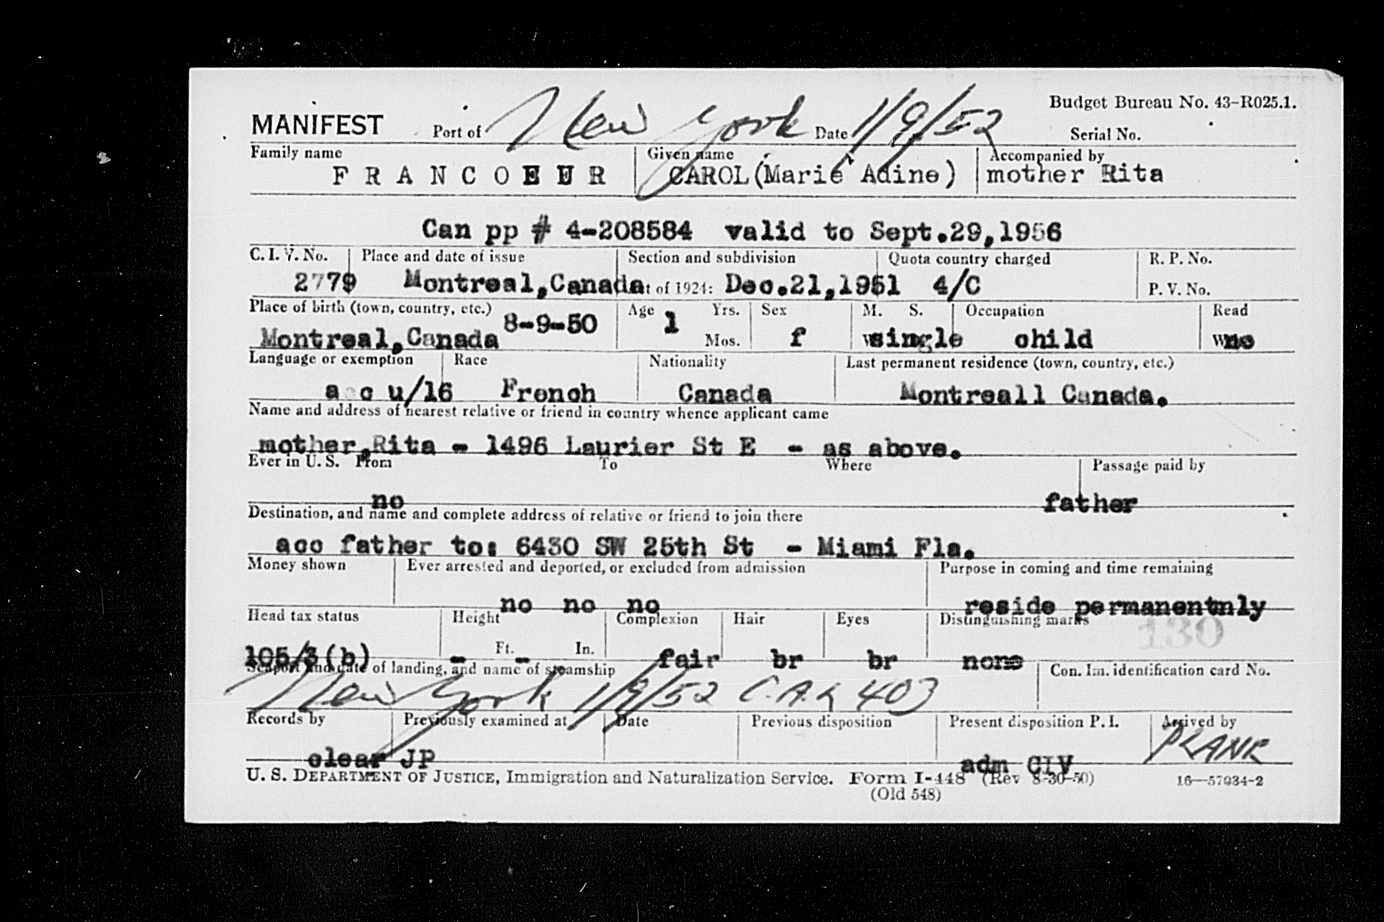 Budget Bureau No. 43-R025.1.
MANIFEST Port of New York Date 1/9/52 Serial No.
Family name Given name Accompanied by
FRANCOEUR CAROL(Marie Adine) mother Rita
Can pp # 4-208584 valid to Sept.29,1956
C. I. V. No. Place and date of issue Section and subdivision Quota country charged R. P. No.
2779 Montreal,Canada t of 1924: Dec.21,1951 4/C P. V. No.
Place of birth (town, country, etc.) Age Yrs. Sex M. S. Occupation Read
Montreal,Canada 8-9-50 1 Mos. f single child no
Language or exemption Race Nationality Last permanent residence (town, country, etc.)
a c u/16 French Canada Montreall Canada.
Name and address of nearest relative or friend in country whence applicant came
mother,Rita - 1496 Laurier St E - as above.
Ever in U. S. From To Where Passage paid by
no father
Destination, and name and complete address of relative or friend to join there
acc father to: 6430 SW 25th St - Miami Fla.
Money shown Ever arrested and deported, or excluded from admission Purpose in coming and time remaining
no no no reside permanentnly
Head tax status Height Complexion Hair Eyes Distinguishing marks 130
105/3(b) - Ft. - In. fair br br none
Seaport and date of landing, and name of steamship Con. Im. identification card No.
New York 1/9/52 C.A.L 403
Records by Previously examined at Date Previous disposition Present disposition P. I. Arrived by
clear JP adm CIV PLANE
U. S. DEPARTMENT OF JUSTICE, Immigration and Naturalization Service. Form I-448 (Rev 8-30-50) 16—57034-2
(Old 548)